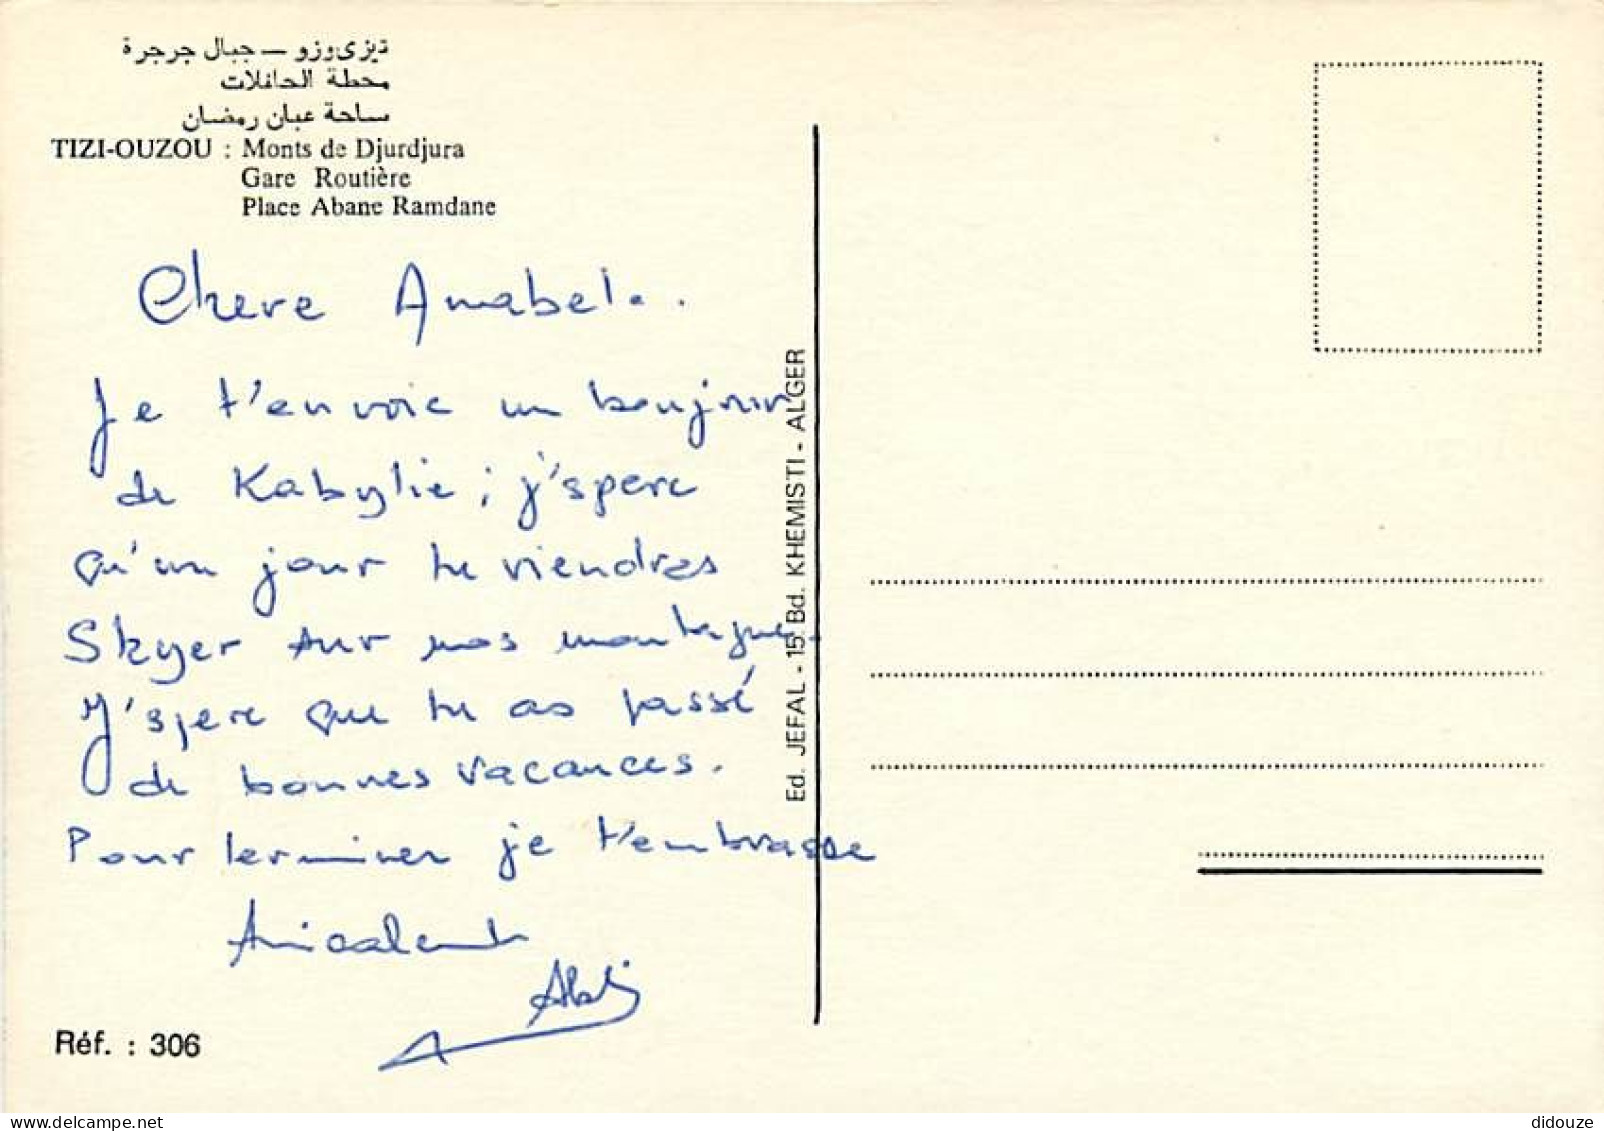 تيزي وزو — جبال جرجرة
محطة الحافلات
ساحة عبان رمضان
TIZI-OUZOU : Monts de Djurdjura
Gare Routière
Place Abane Ramdane
Chere Annabele.
Je t'envoie un boujour
de Kabylie ; j'spere
qu'un jour tu viendras
Skyer sur nos montagnes.
J'spere que tu as passé
de bonnes vacances.
Pour terminer je t'embrasse
Amicalement
Réf. : 306
Ed. JEFAL - 15 Bd. KHEMISTI - ALGER
didouze